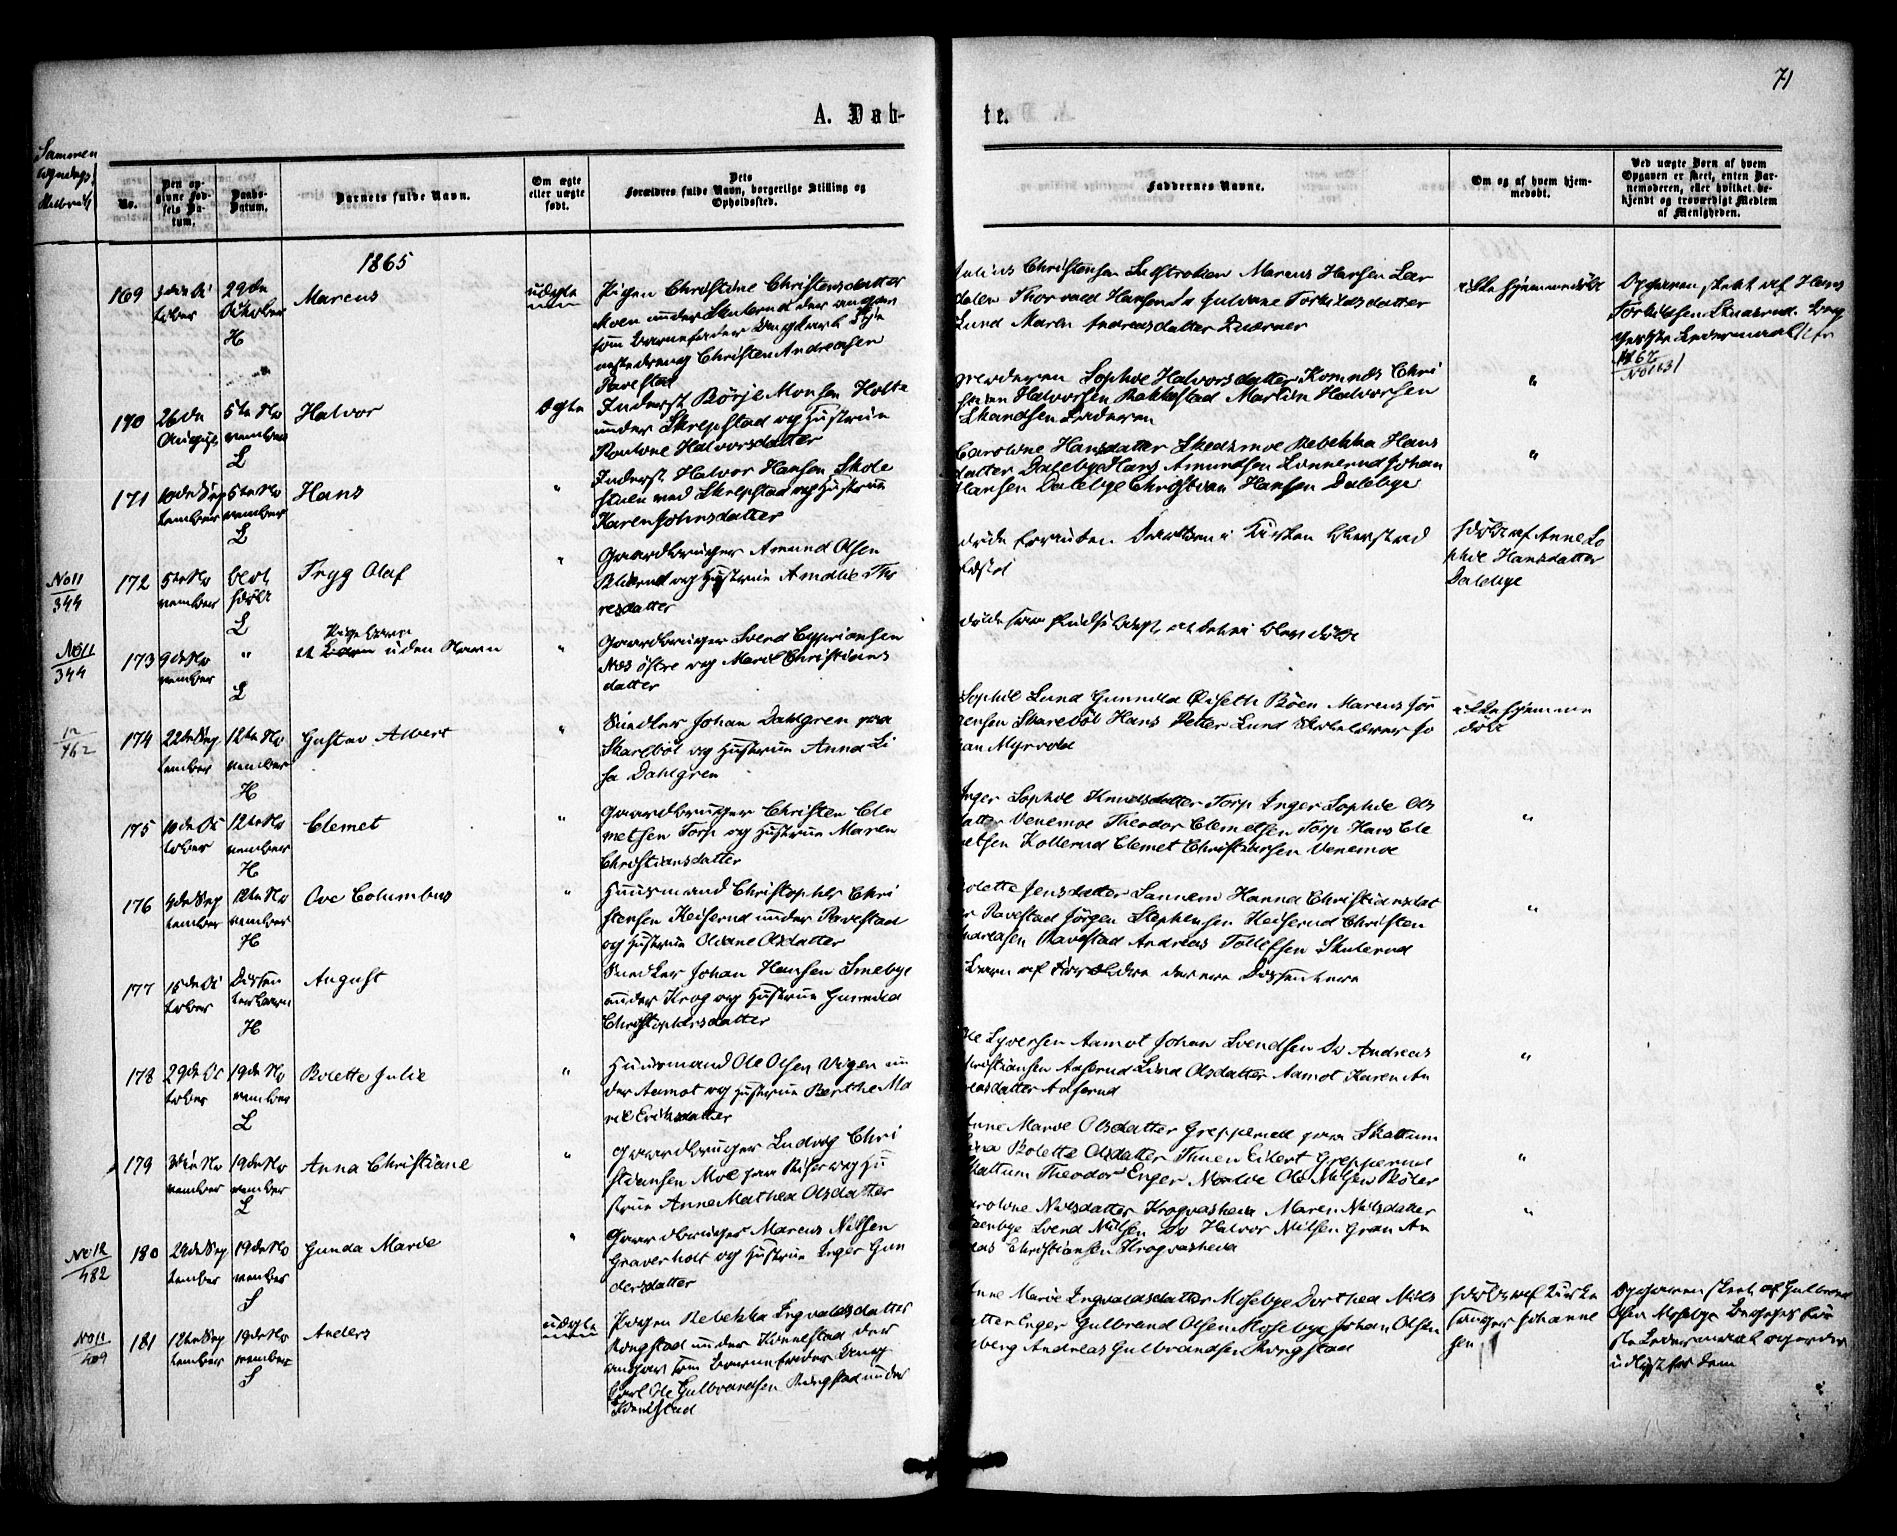 71
A. Døb-
te.
Sammen
No.
Den op-
givne Fød-
sels Da-
tum.
Daabs-
Datum.
Barnets fulde Navn.
Om ægte
eller uægte
født.
Dets
Forældres fulde Navn, borgerlige Stilling og
Opholdssted.
Faddernes Navne.
Om og af hvem hjem-
medøbt.
Ved uægte Børn af hvem
Opgaven er skeet, enten Bar-
nemoderen, eller hvilket be-
kjendt og troværdigt Medlem
af Menigheden.
1865
169
29de
Oktober
H
Marcus
uægte
Pigen Christine Christensdatter
Moen under Skulerud der angav
som Barnefader Ungkarl
Christen Andreasen
Ravestad
Julius Christensen Marcus Hansen Lær
dalen Thorvald Hansen Do Juliane Torkildsdatter
Lund Maren Andreasdatter
ikke hjemmedøbt
Opgaven skeet af Hans
Torkildsen
170
26de
August
5te No
vember
L
Halvor
Ægte
Inderst Börje Monsen Holte
under Skrepstad og Hustrue
Halvorsdatter
Sophie Halvorsdatter Komnæs Chri
sten Halvorsen Rakkestad Martin Halvorsen
"
171
10de Sep
tember
5te No
vember
L
Hans
"
Inderst Halvor Hansen Skole
stuen ved Skrepstad og Hustrue
Karen Johnsdatter
Caroline Hansdatter Skedsmoe Rebekka Hans
datter Dalebye Hans Amundsen Johan
Hansen Dalebye Christian Hansen Dalebye
"
No 11
344
172
5te No
vember
L
Tryg Olaf
"
Gaardbruger Amund Olsen
og Hustrue Amalie Tho
resdatter
døde foruden Daabsen i Kirken
af Anne So
phie Hansdatter
Dalebye
No 11
344
173
9de No
vember
"
L
Pigebarn
et uden Navn
"
Gaardbruger Svend Cypriansen
Næs østre og Marie Christians
datter
døde
12
462
174
22de Sep
tember
12te No
vember
H
Gustav Albert
"
Snedker Johan Dahlgren paa
Skarebøl og Hustrue Anna Li
sa Dahlgren
Sophie Lund Gunnild Böen Marcus Jör
gensen Skarebøl Hans Petter Lund Jo
han Myrvold
ikke hjemme
døbt
175
10de Oc
tober
12te No
vember
H
Clemet
"
Gaardbruger Christen Cle
metsen Torp og Hustrue Maren
Christiansdatter
Inger Sophie Knudsdatter Torp Inger Sophie Ols
datter Venemoe Theodor Clemetsen Torp Hans Cle
metsen Kollerud Clemet Christiansen Venemoe
"
176
4de Sep
tember
12te No
vember
H
Ove Columbus
"
Huusmand Christopher Chri
stensen Keiserud under Ravestad
og Hustrue Oleane Olsdatter
Bolette Jensdatter Sannem Hanna Christiansdat
ter Ravestad Jörgen Stephensen Keiserud Christen
Andreasen Ravestad Andreas Tollefsen Skulerud
"
177
15de Oc
tober
Dissen
terbarn
H
August
Snedker Johan Hansen Smebye
under Krog og Hustrue Gunnild
Christophersdatter
Barn af Forældre der ere Dissentere
178
29de Oc
tober
19de No
vember
L
Bolette Julie
"
Huusmand Ole Olsen Vigen un
der Aamot og Hustrue Berthe Ma
rie Eriksdatter
Ole Syversen Aamot Johan Svendsen Do Andreas
Christiansen Aaserud Lina Olsdatter Aamot Karen An
dreasdatter Aaserud
"
179
No
vember
19de No
vember
L
Anna Christiane
"
Gaardbruger Ludvig Chri
stiansen Moe paa og Hu
strue Anne Mathea Olsdatter
Anne Marie Olsdatter Grepperud paa Skattum
Bolette Olsdatter Thuen Eilert Grepperud
Skattum Theodor Enger Nordre Ole Nilsen Böler
"
No 12
482
180
24de Sep
tember
19de No
vember
S
Gunda Marie
"
Gaardbruger Marcus Nilsen
Graverholt og Hustrue Inger Gun
dersdatter
Caroline Nilsdatter Krogvasheia Maren Nilsdatter
Svend Nilsen Do Halvor Nilsen Gran An
dreas Christiansen Krogvasheia
"
No 11
409
181
12te Sep
tember
19de No
vember
S
Anders
uægte
Pigen Rebekka Ingvaldsdatter
Rogstad under Kroelstad der
angav som Barnefader Ung
karl Ole Gulbrandsen Rogstad under
Anne Marie Ingvaldsdatter Mosebye Dorthea Nils
datter Enger Gulbrand Olsen Mosebye Johan Olsen
Andreas Gulbrandsen Rogstad
af Kirke
sanger Johanne
sen
Opgaven skeet af Gulbrand
Olsen Mosebye
udlyst for dem